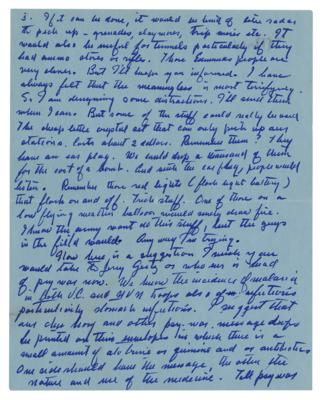 3. If it can be done, it would be kind of like radar
to pick up - grenades, claymores, trip wires etc. It
would also be useful for tunnels particularly if they
had ammo stores or rifles. Those business people are
very clever. But I'll keep you informed. I have
always felt that the meaningless is most terrifying.
So I am designing some distractions. I'll send them
when I can. But some of the stuff could really be used
The cheap little crystal set that can only pick up any
stations. Costs about 2 dollars. Remember them? They
have an ear plug. We could drop a thousand of them
for the cost of a bomb. And with the ear plug, people would
listen. Remember those red lights (flash light battery)
that flash on and off. Trick stuff. One of those on a
low flying weather balloon would surely draw fire.
I know the army wont do this stuff, but the guys
in the field would. Any way I'm trying.
Now here is a suggestion I wish you
would take to Jerry or who ever is head
of psy war now. We know the incidence of malaria
in both V.C. and troops also of infections
particularly stomach infections. I suggest that
our and other psy-war message drops
be printed on envelopes in which there is a
small amount of atabrine or quinine and or antibiotics
One side should have the message, the other the
nature and use of the medicine. Tell psywar